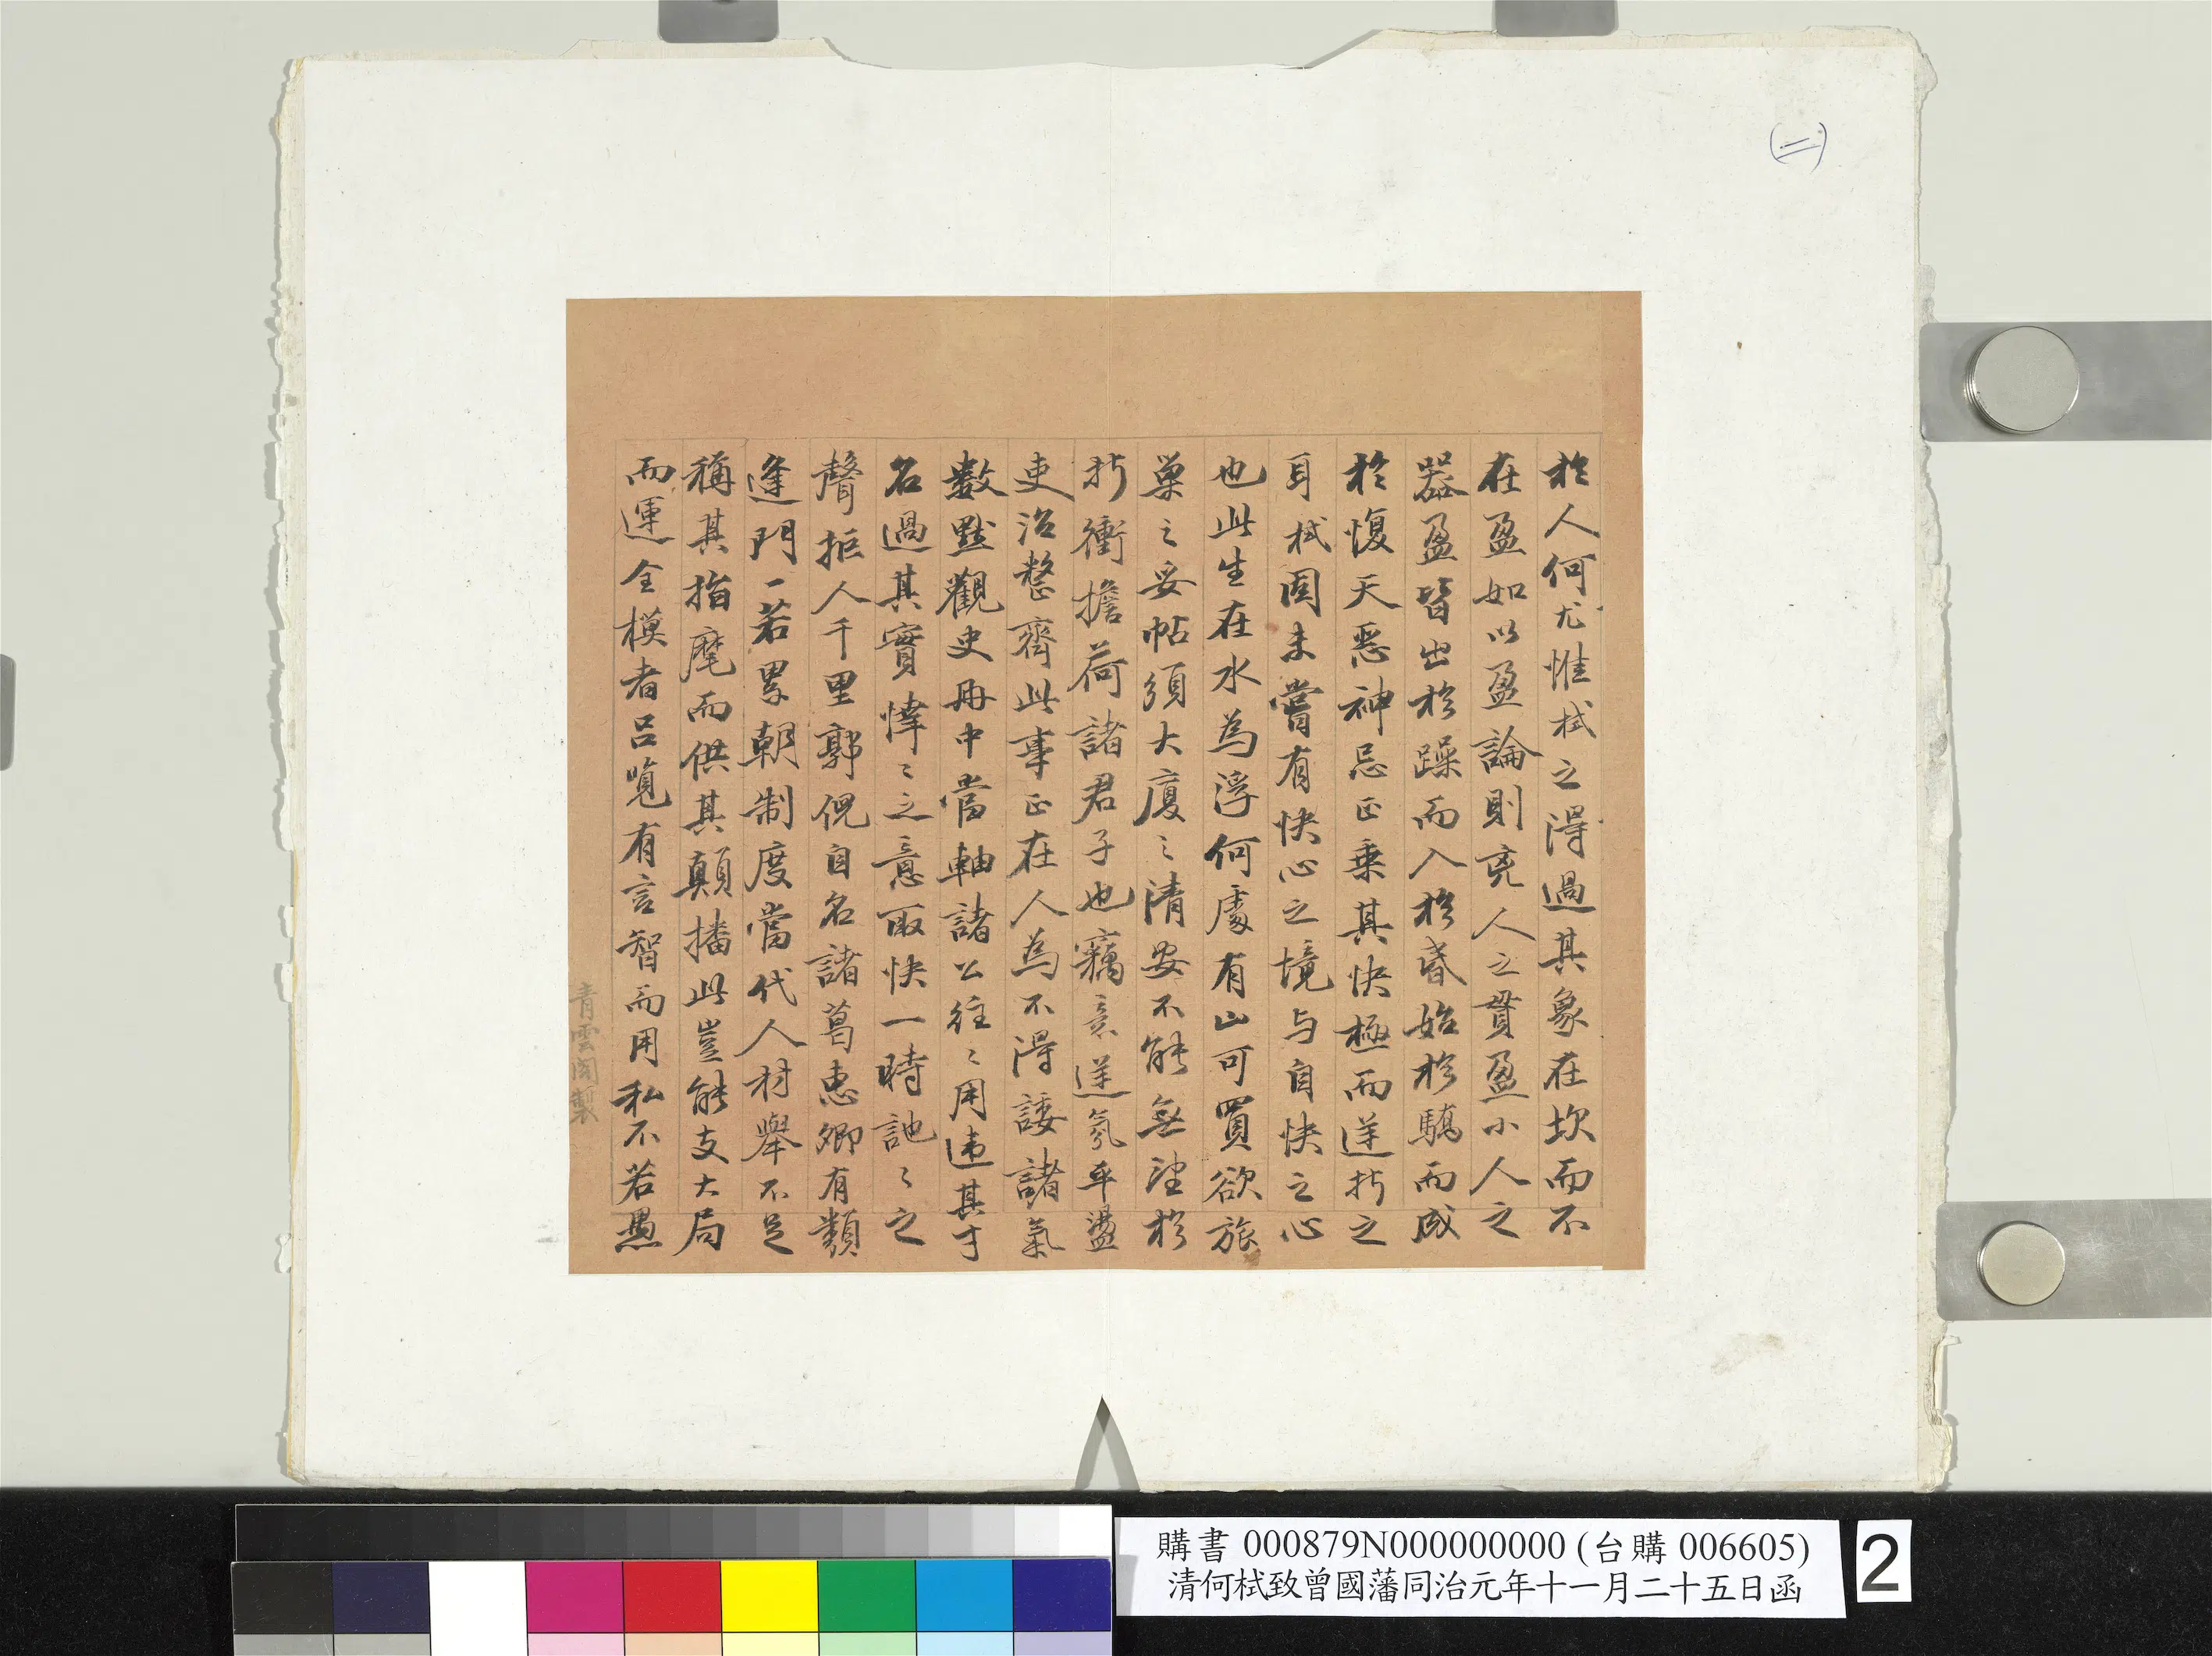 (二)
於人何尤惟栻之得過其象在坎而不
在盈如以盈論則兇人之貫盈小人之
器盈皆出於躁而入於昏始於驕而成
於愎天惡神忌正乘其快極而逆折之
耳栻固未嘗有快心之境与自快之心
也此生在水為浮何處有山可買欲旅
巢之妥帖須大廈之清安不能無望於
折衝擔荷諸君子也竊意逆氛平盪
吏治整齊此事正在人為不得諉諸氣
數歷觀史冊中當軸諸公往〻用違其才
名過其實悻〻之意取快一時訑〻之
聲拒人千里郭倪自名諸葛惠卿有類
逢門一若累朝制度當代人材舉不足
稱其指麾而供其顛播此豈能支大局
而運全模者呂覽有言智而用私不若愚
青雲閣製
購書 000879N000000000 (台購 006605)
清何栻致曾國藩同治元年十一月二十五日函
2